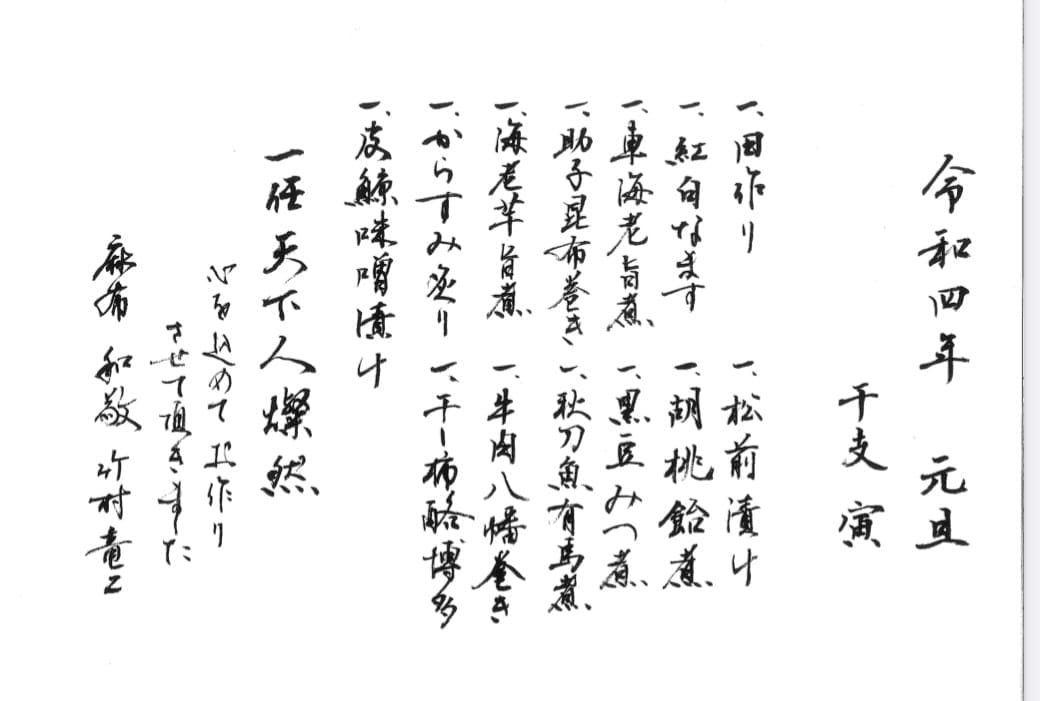 令和四年 元旦
干支 寅
一、田作り
一、松前漬け
一、紅白なます
一、胡桃飴煮
一、車海老旨煮
一、黒豆みつ煮
一、助子昆布巻き
一、秋刀魚有馬煮
一、海老芋旨煮
一、牛肉八幡巻き
一、からすみ炙り
一、干し柿酪博多
一、皮鯨味噌漬け
一任天下人燦然
心を込めてお作り
させて頂きました
麻布 和敬 竹村竜二